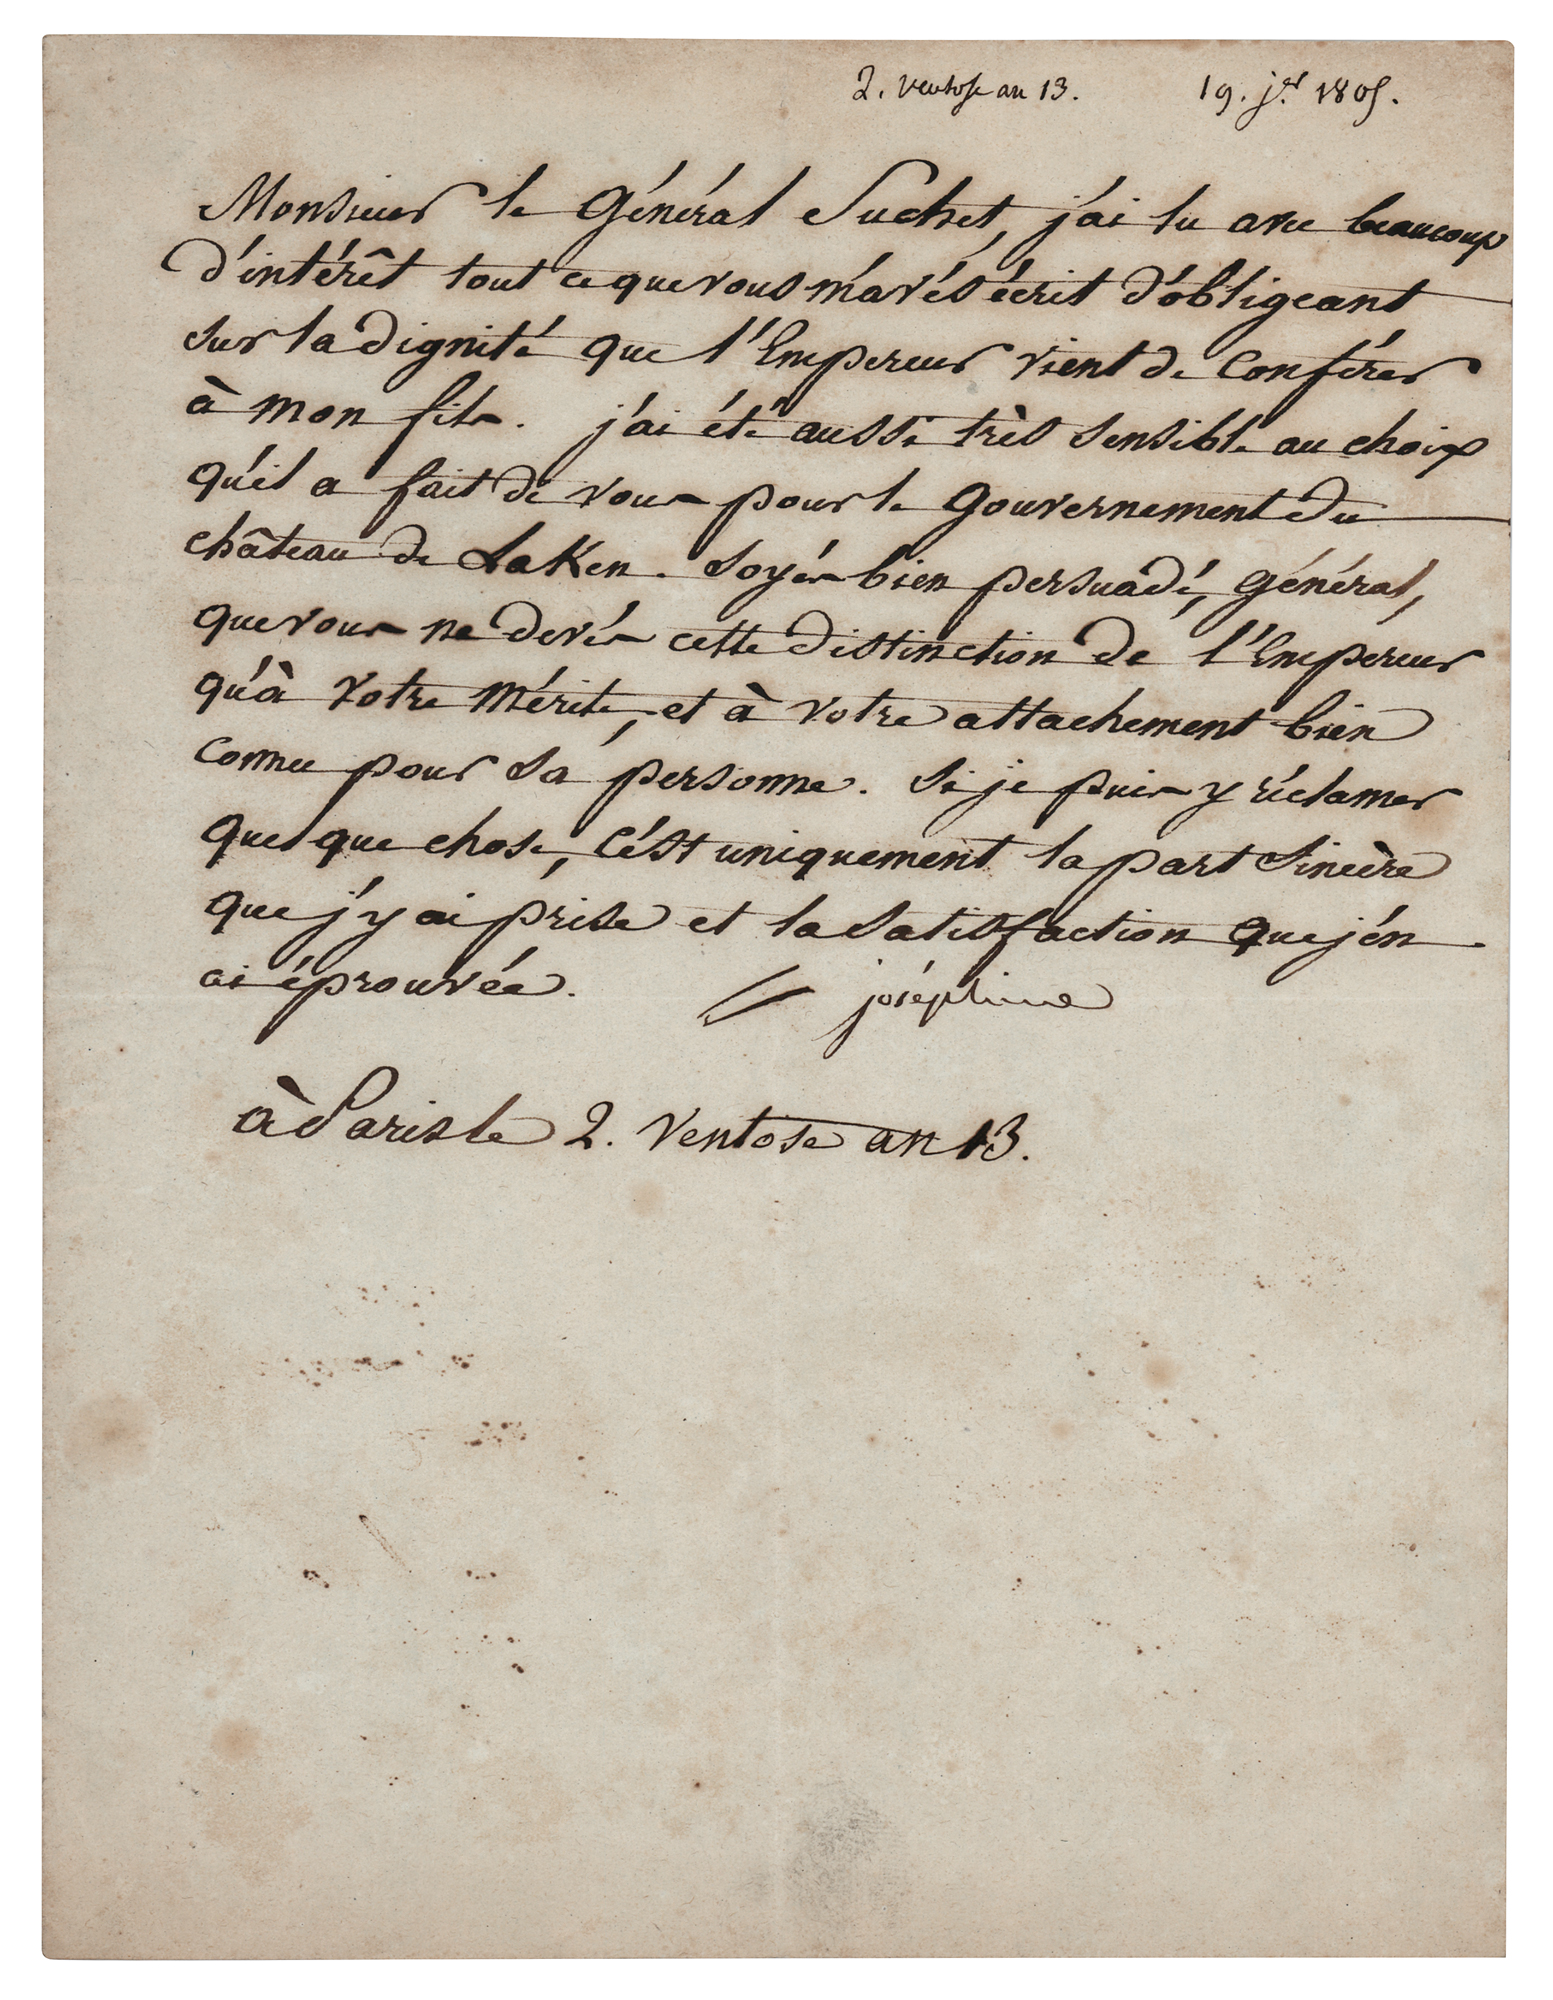 2. ventose an 13. 19. j.er 1805.
Monsieur le Général Suchet, j'ai lu avec beaucoup
d'intérêt tout ce que vous m'avés écrit d'obligeant
sur la dignité que l'Empereur vient de conférer
à mon fils. j'ai été aussi très sensible au choix
qu'il a fait de vous pour le Gouvernement du
château de Laken. Soyés bien persuadé, Général,
que vous ne devés cette distinction de l'Empereur
qu'à votre mérite, et à votre attachement bien
connu pour sa personne. Si je puis y réclamer
quelque chose, c'est uniquement la part sincère
que j'y ai prise et la satisfaction que j'en
ai éprouvée. joséphine
à Paris le 2. Ventose an 13.